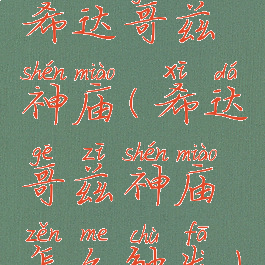 希达哥兹
shén miào xī dá
神庙(希达
gē zī shén miào
哥兹神庙
zěn me chù fā
怎么触发)